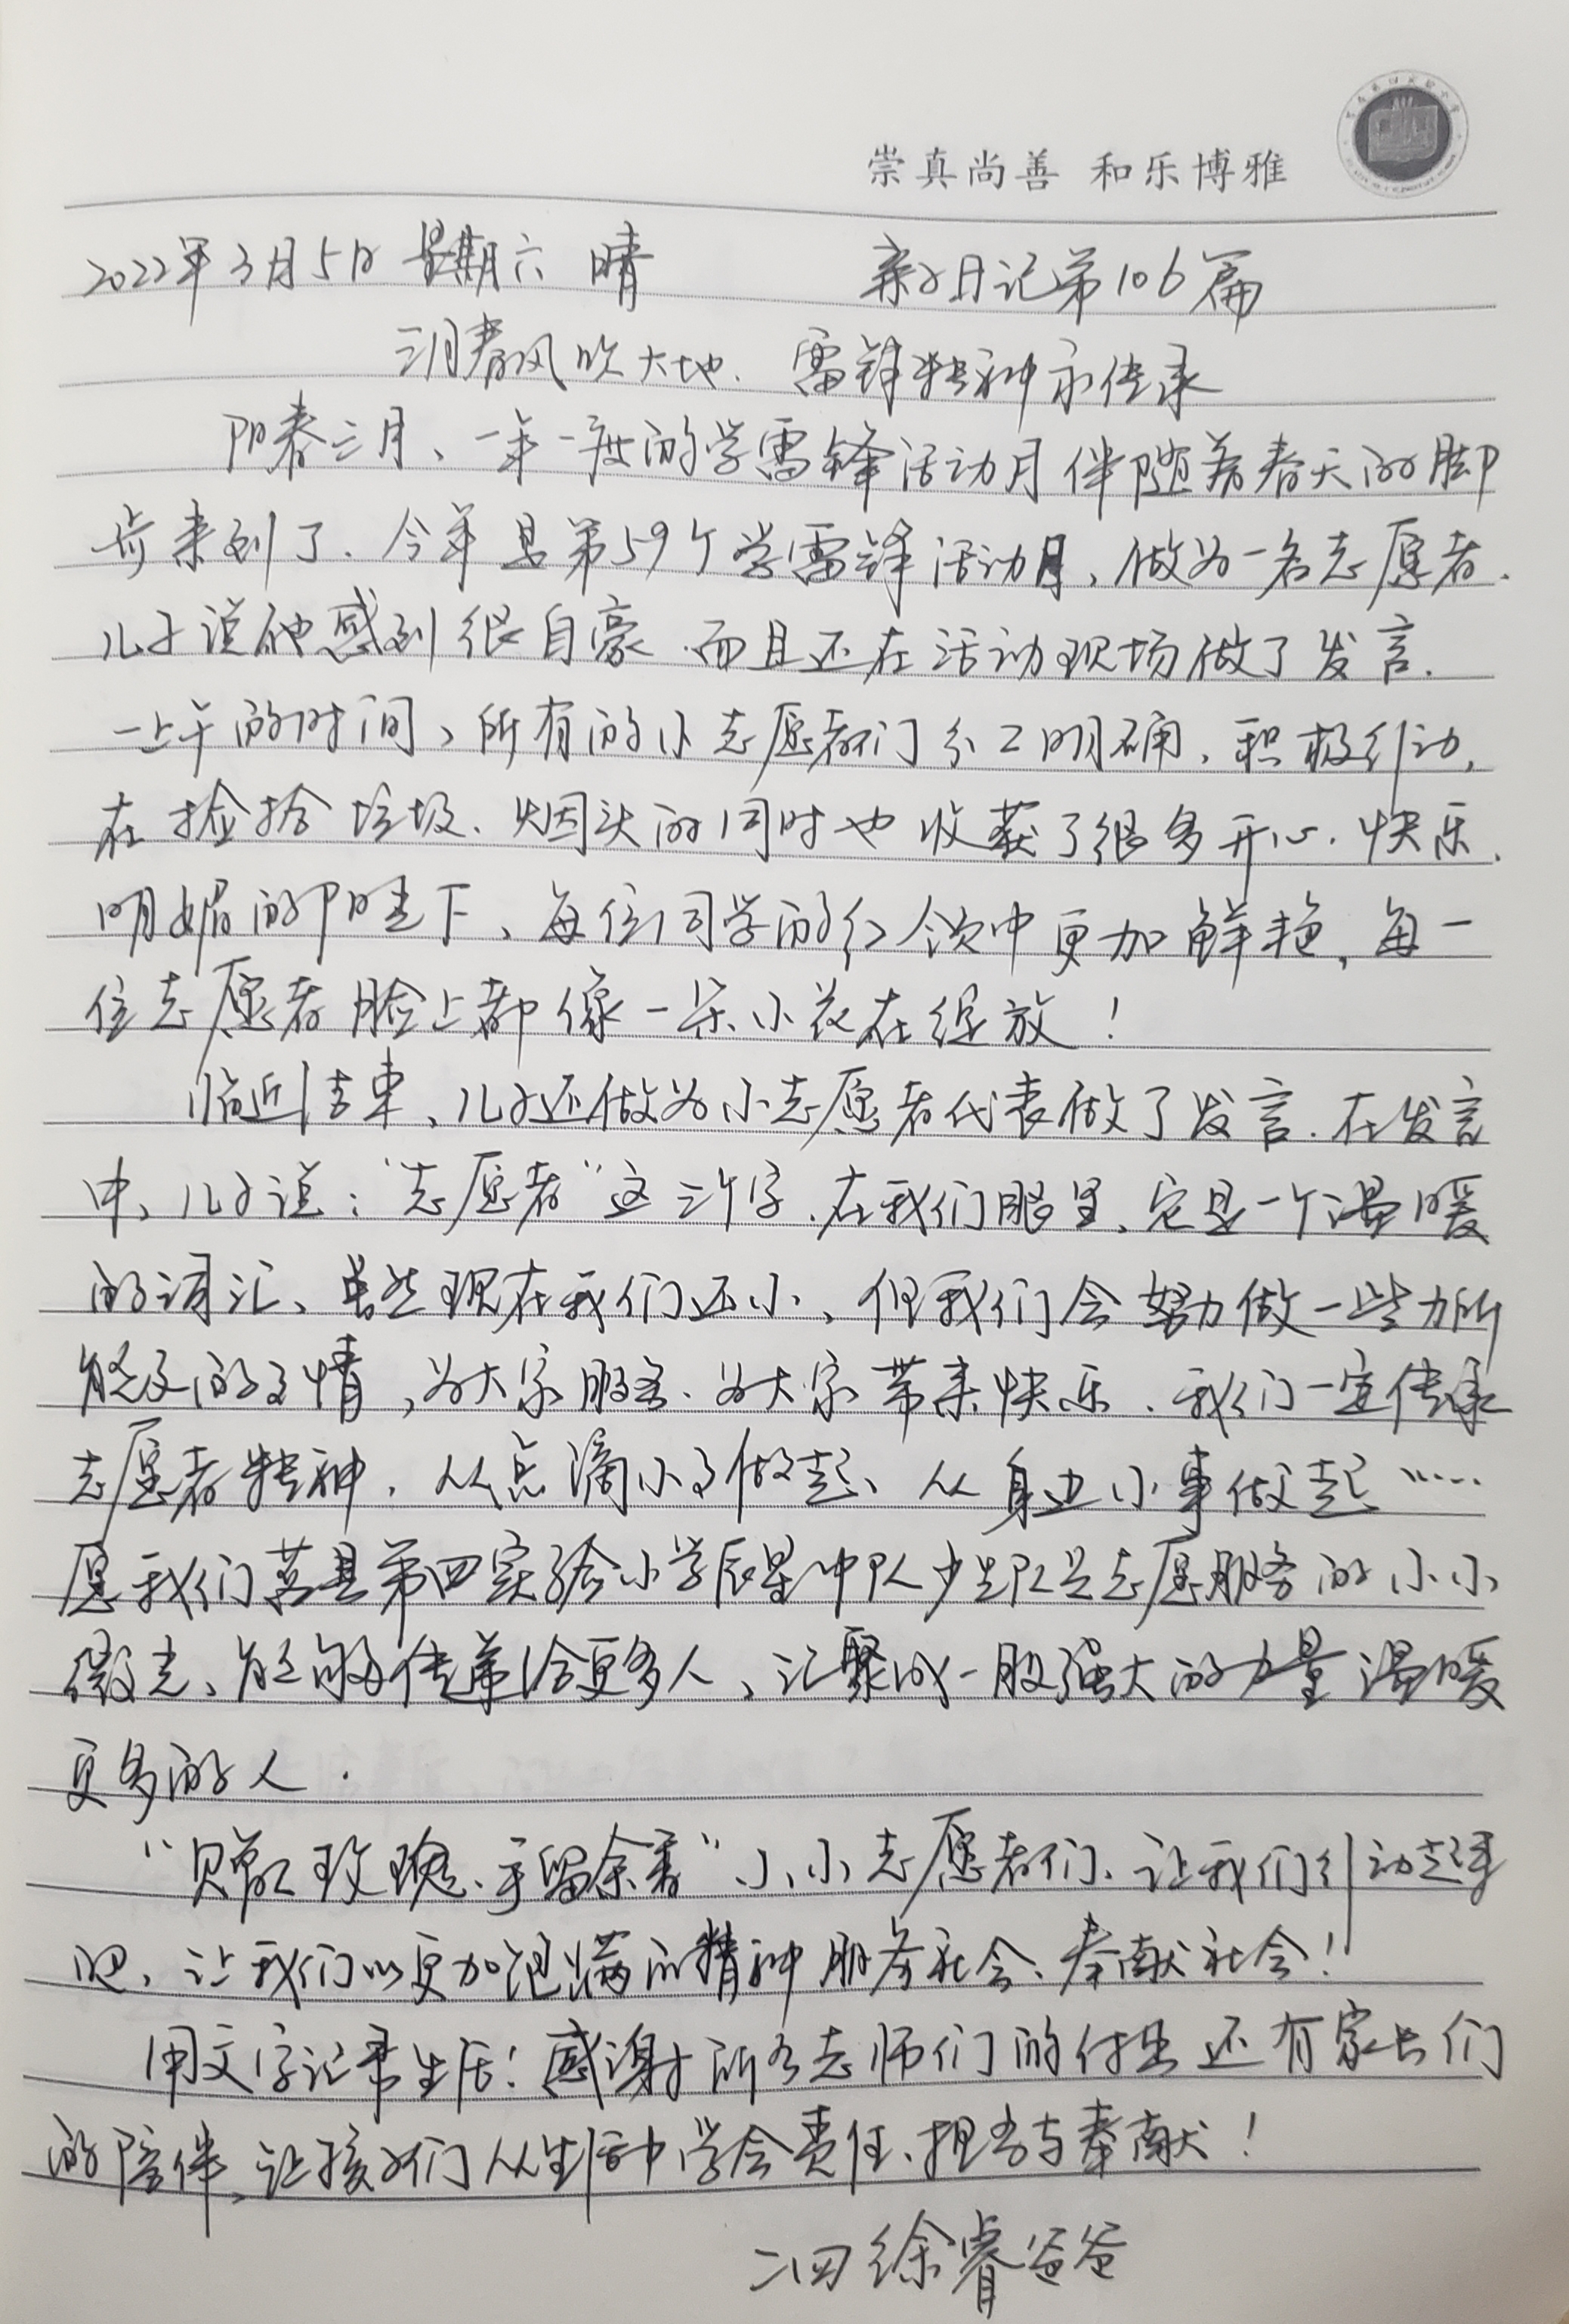 崇真尚善 和乐博雅
2022年3月5日 星期六 晴 亲子日记第106篇
三月春风吹大地、雷锋精神永传承
阳春三月、一年一度的学雷锋活动月伴随着春天的脚
步来到了、今年是第59个学雷锋活动月、做为一名志愿者、
儿子说他感到很自豪、而且还在活动现场做了发言.
一上午的时间、所有的小志愿者们分工明确、积极行动,
在捡拾垃圾、烟头的同时也收获了很多开心、快乐、
明媚的阳光下、每位同学的红领巾更加鲜艳、每一
位志愿者脸上都像一朵小花在绽放!
临近结束、儿子还做为小志愿者代表做了发言.在发言
中、儿子说:“志愿者”这三个字、在我们眼里、它是一个温暖
的词汇、虽然现在我们还小、但我们会努力做一些力所
能及的事情,为大家服务、为大家带来快乐、我们一定传承
志愿者精神、从点滴小事做起、从身边小事做起……
愿我们莒县第四实验小学辰星中队少先队员志愿服务的小小
微光、能够传递给更多人、汇聚成一股强大的力量温暖
更多的人.
“赠人玫瑰、手留余香”小小志愿者们、让我们行动起来
吧、让我们以更加饱满的精神服务社会、奉献社会!
用文字记录生活!感谢所有老师们的付出还有家长们
的陪伴、让孩子们从生活中学会责任、担当与奉献!
二四 徐睿爸爸